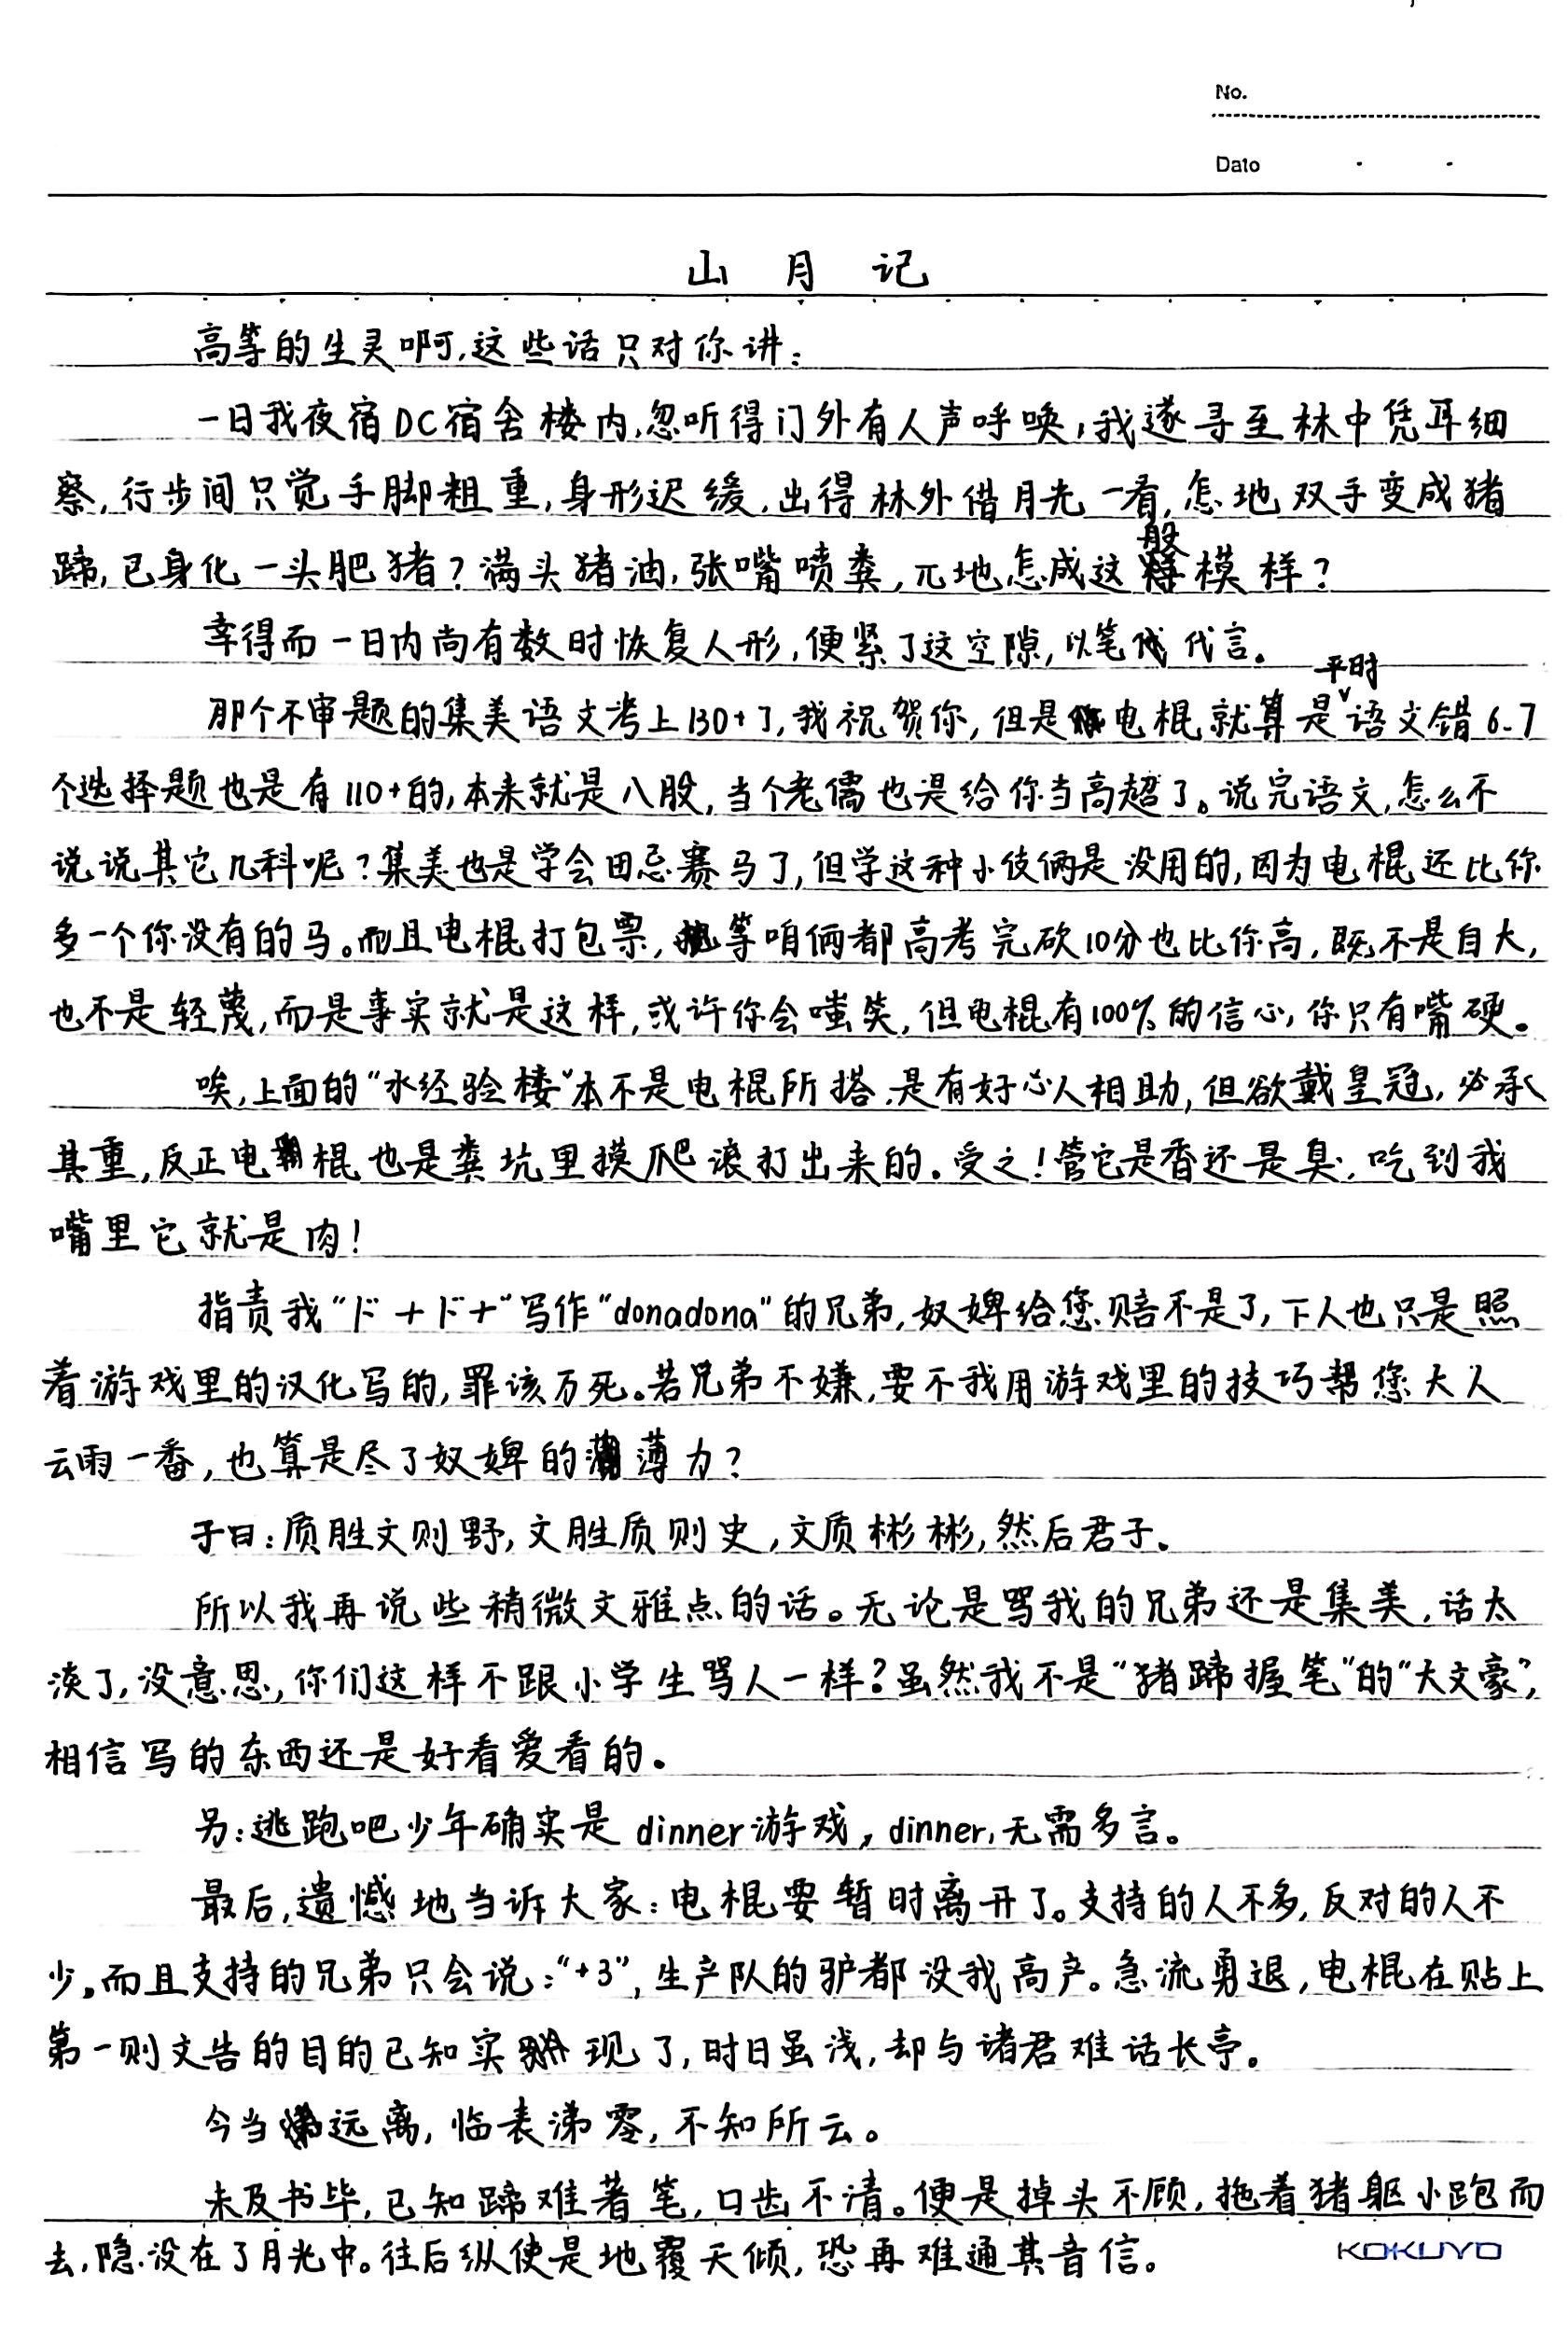 No.
Date
山月记
高等的生灵啊,这些话只对你讲:
一日我夜宿DC宿舍楼内,忽听得门外有人声呼唤,我遂寻至林中凭耳细
察,行步间只觉手脚粗重,身形迟缓,出得林外借月光一看,怎地双手变成猪
蹄,已身化一头肥猪?满头猪油,张嘴喷粪,兀地怎成这般模样?
幸得而一日内尚有数时恢复人形,便紧了这空隙,以笔代言。
那个不审题的集美语文考上130+了,我祝贺你,但是电棍就算是平时语文错6-7
个选择题也是有110+的,本来就是八股,当个老儒也是给你当高超了。说完语文,怎么不
说说其它几科呢?集美也是学会田忌赛马了,但学这种小伎俩是没用的,因为电棍还比你
多一个你没有的马。而且电棍打包票,等咱俩都高考完砍10分也比你高,既不是自大,
也不是轻蔑,而是事实就是这样,或许你会嗤笑,但电棍有100%的信心,你只有嘴硬。
唉,上面的“水经验楼”本不是电棍所搭,是有好心人相助,但欲戴皇冠,必承
其重,反正电棍也是粪坑里摸爬滚打出来的。受之!管它是香还是臭,吃到我
嘴里它就是肉!
指责我“ド+ド+”写作“donadona”的兄弟,奴婢给您赔不是了,下人也只是照
着游戏里的汉化写的,罪该万死。若兄弟不嫌,要不我用游戏里的技巧帮您大人
云雨一番,也算是尽了奴婢的薄力?
子曰:质胜文则野,文胜质则史,文质彬彬,然后君子。
所以我再说些稍微文雅点的话。无论是骂我的兄弟还是集美,话太
淡了,没意思,你们这样不跟小学生骂人一样?虽然我不是“猪蹄握笔”的“大文豪”,
相信写的东西还是好看爱看的。
另:逃跑吧少年确实是dinner游戏,dinner,无需多言。
最后,遗憾地当诉大家:电棍要暂时离开了。支持的人不多,反对的人不
少。而且支持的兄弟只会说:“+3”,生产队的驴都没我高产。急流勇退,电棍在贴上
第一则文告的目的已知实现了,时日虽浅,却与诸君难话长亭。
今当远离,临表涕零,不知所云。
未及书毕,已知蹄难著笔,口齿不清。便是掉头不顾,拖着猪躯小跑而
去,隐没在了月光中。往后纵使是地覆天倾,恐再难通其音信。
KOKUYO